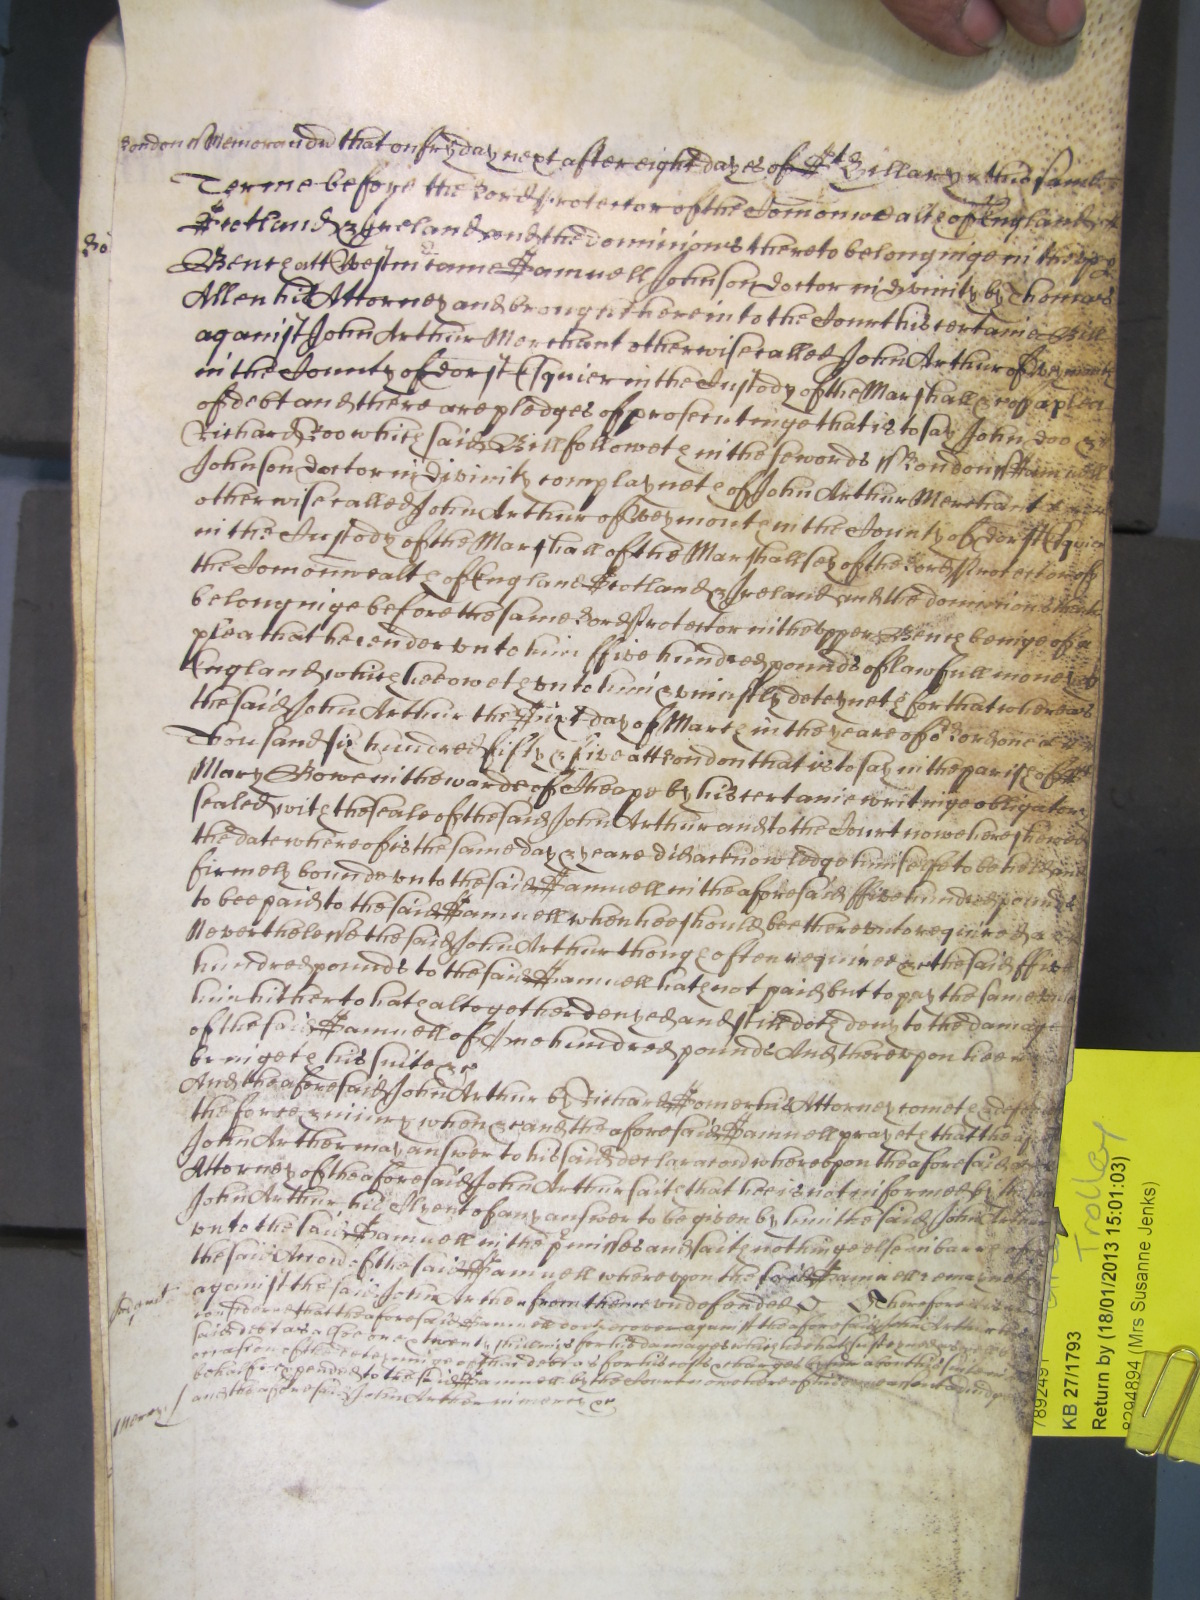 London ss Memorandu that on fryday next after eight dayes of St Hillary this same
Terme before the Lord Protector of the Comonwealth of England
Scotland & Ireland and the dominions thereto belonginge in the upp
Ro
Bench att Westm came Samuell Johnson doctor in divinity by Thomas
Allen his Attorney and brought here into the Court his certaine Bill
against John Arthur Merchant otherwise called John Arthur of Weymouth
in the County of Dorst Esquier in the Custody of the Marshall &c of a plea
of debt and there are pledges of prosecutinge that is to say John Doo &
Richard Roo which said Bill followeth in these words ss London ss Samuell
Johnson doctor in divinity complayneth of John Arthur Merchant
otherwise called John Arthur of Weymouth in the County of Dorst Esquier
in the Custody of the Marshall of the Marshallsey of the Lord Protector of
the Comonwealth of England Scotland & Ireland and the dominions thereto
belonginge before the same Lord Protector in the upper Bench beinge of a
plea that he render unto him ffive hundred pounds of lawfull money of
England which hee oweth unto him & uniustly deteyneth for that whereas
the said John Arthur the day of March in the yeare of or Lord one
Thousand six hundred fifty & five att London that is to say in the parish of St
Mary Bowe in the warde of Cheape by his certaine writinge obligatory
sealed with the seale of the said John Arthur and to the Court nowe here shewed
the date whereof is the same day & yeare did acknowledge himselfe to be held and
firmely bounde unto the said Samuell in the aforesaid ffive hundred pounds
to bee paid to the said Samuell when hee should bee thereunto required
Neverthelesse the said John Arthur though often required &c the said ffive
hundred pounds to the said Samuell hath not paid but to pay the same unto
him hitherto hath altogether denyed and still doth deny to the damage
of the said Samuell of One hundred pounds And thereupon hee
bringeth his suite &c
And the aforesaid John Arthur by Richard Somer his Attorney cometh & defends
the force & iniury when &c and the aforesaid Samuell prayeth that the
John Arther may answer to his said declaracon whereupon the aforesaid
Attorney of the aforesaid John Arthur saith that hee is not informed by the said
John Arthur his Clyent of any answer to be given by him the said John Arthur
unto the said Samuell in the pmisses and saith nothinge else in barre of
the said Accon of the said Samuell whereupon the said Samuell remayneth
against the said John Arther from thence undefended Therefore it is
Judgmt
considered that the aforesaid Samuell doe recover against the aforesaid John Arthur his
said debt as alsoe one & twenty shillings for his damages which hee hath susteyned
occasion of the deteyninge of that debt as for his costs & charges by him about his suite in
behalfe expended to the said Samuell by the Court nowe here
Mercy
and the aforesaid John Arther in mercy &c
Trolley
7892491
KB 27/1793
Return by (18/01/2013 15:01:03)
8294894 (Mrs Susanne Jenks)